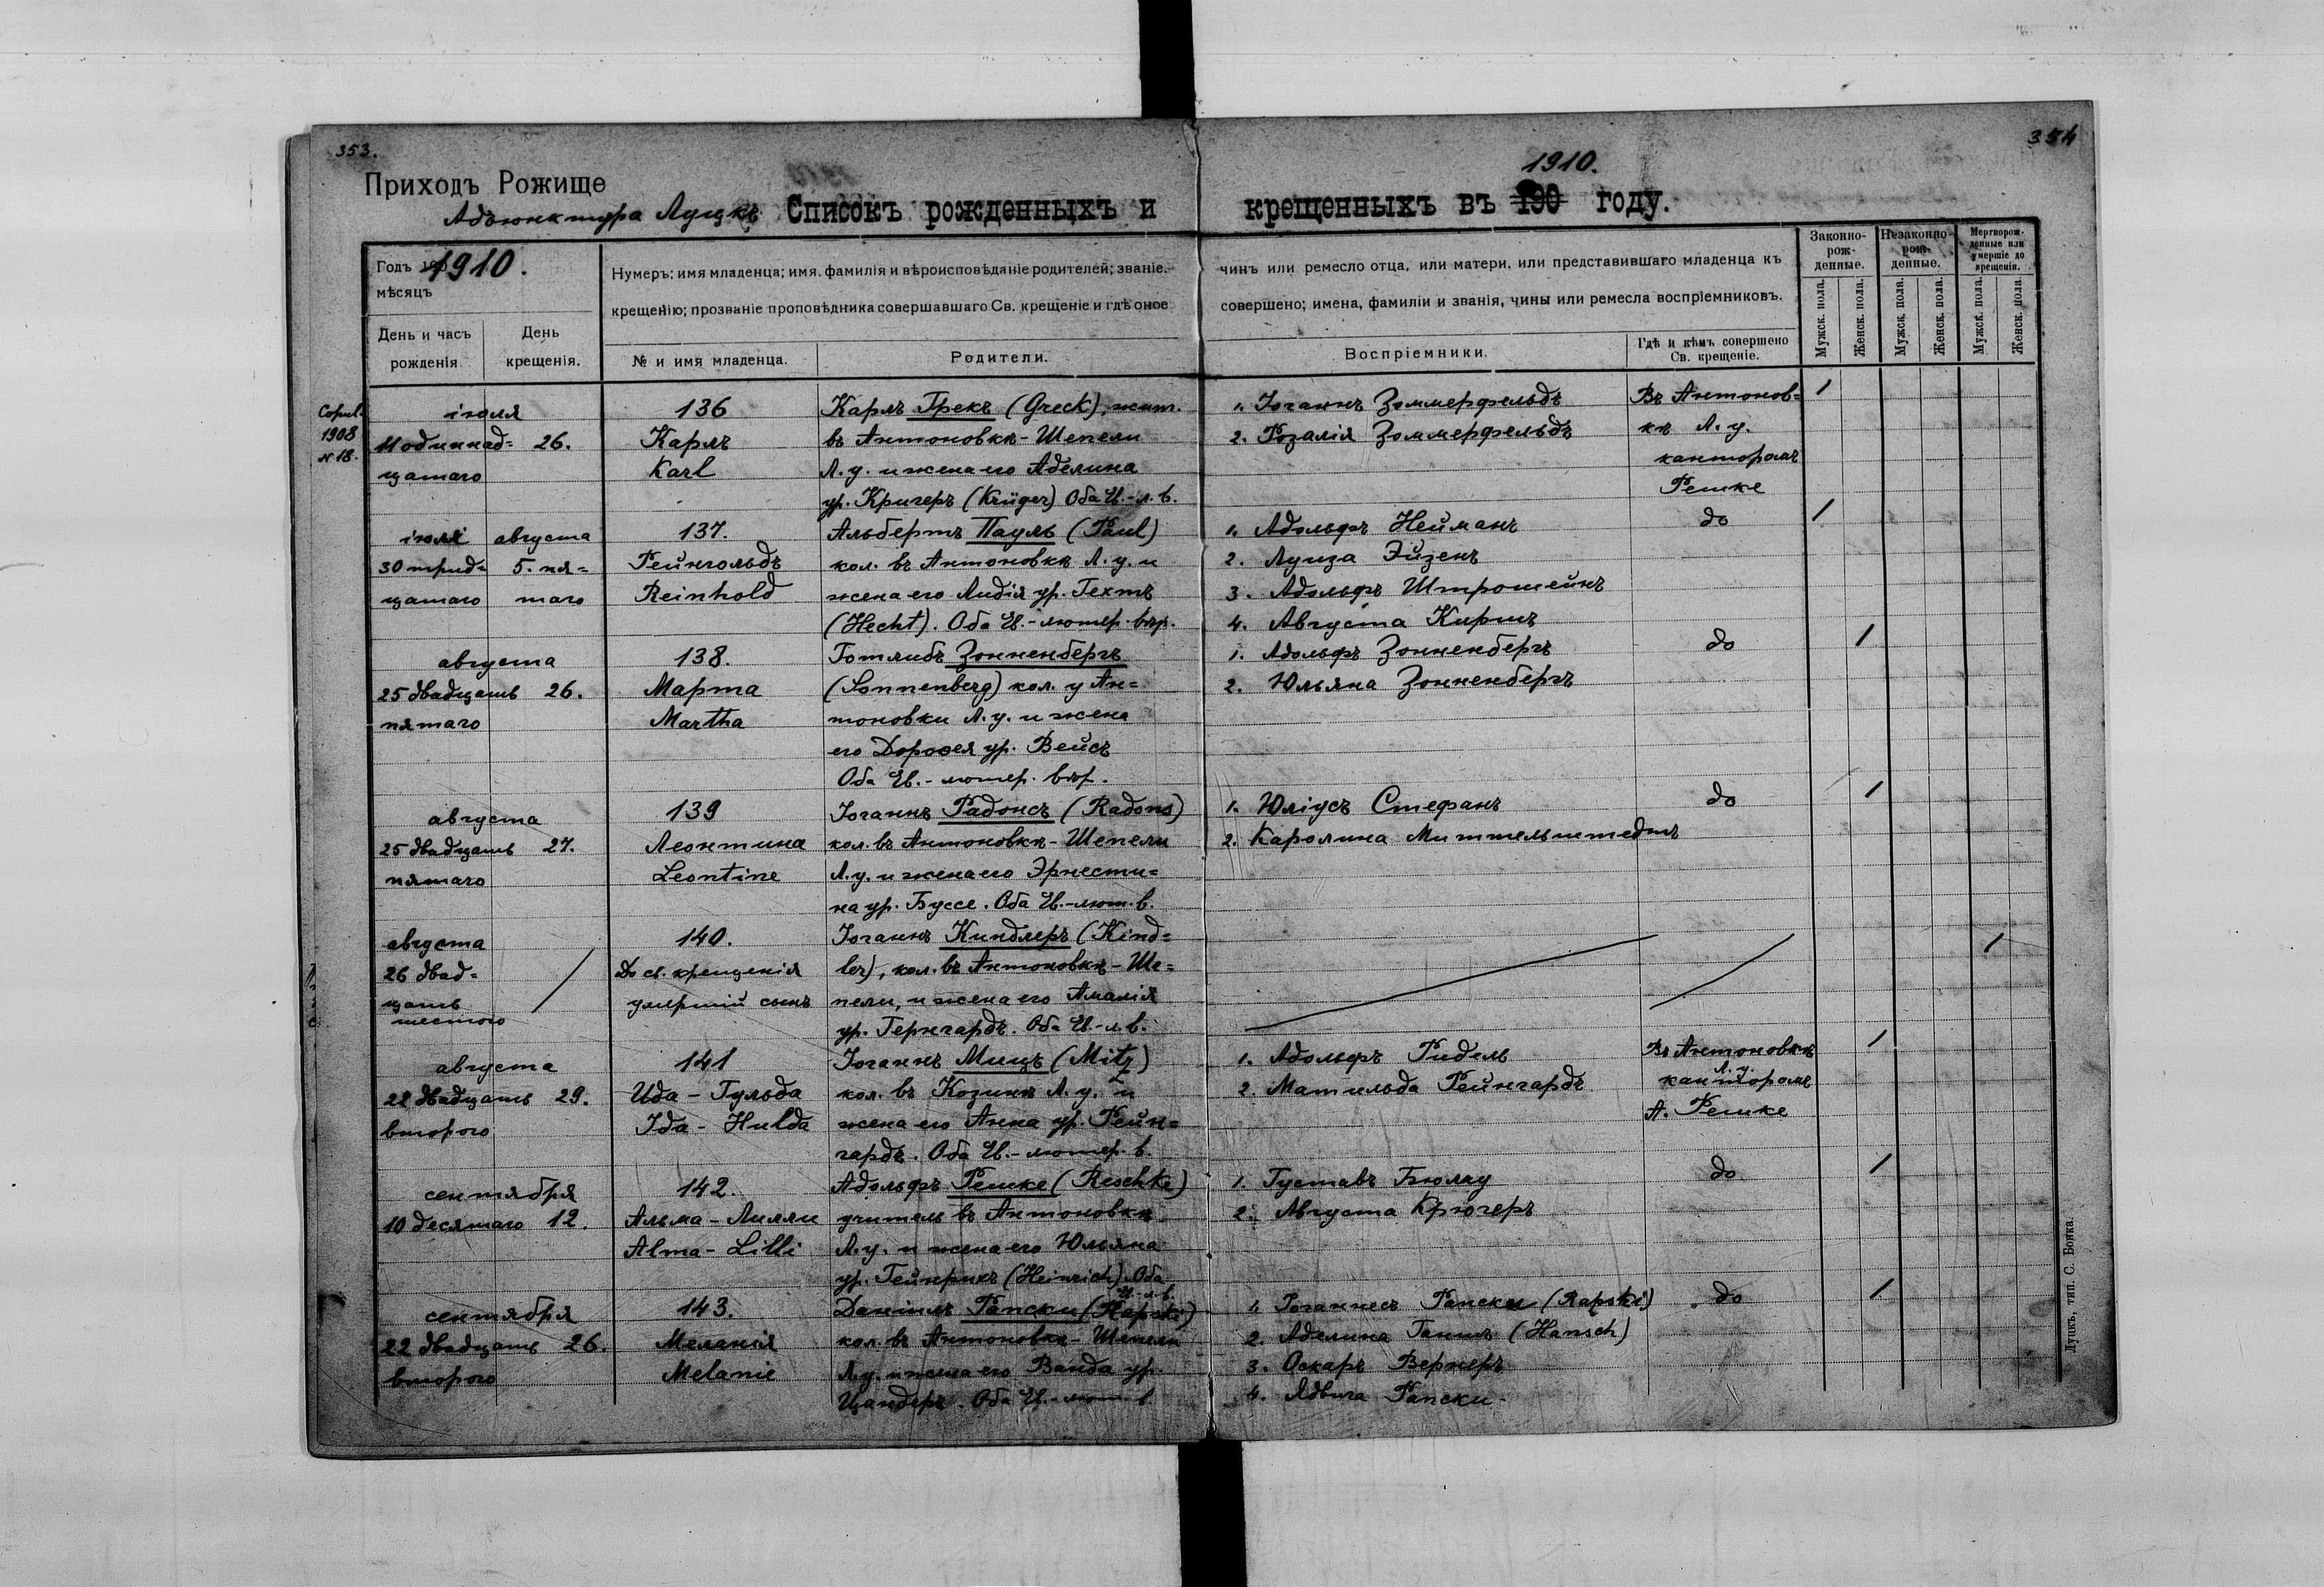 353.
354
Приходъ Рожище
Адъюнктура Луцкъ
Списокъ рожденныхъ и
1910.
крещенныхъ въ 190 году.
Годъ 1910.
мѣсяцъ
День и часъ рожденія
День крещенія.
Нумеръ; имя младенца; имя, фамилія и вѣроисповѣданіе родителей; званіе,
крещенію; прозваніе проповѣдника совершавшаго Св. крещеніе и гдѣ оное
№ и имя младенца.
Родители.
чинъ или ремесло отца, или матери, или представившаго младенца къ
совершено; имена, фамиліи и званія, чины или ремесла воспріемниковъ.
Воспріемники.
Гдѣ и кѣмъ совершено
Св. крещеніе.
Законно-
рож-
денные.
Незаконно
рож-
денные.
Мертворож-
денные или
умершіе до
крещенія.
Мужск. пола.
Женск. пола.
Мужск. пола.
Женск. пола.
Мужск. пола.
Женск. пола
Copul.
1908
N 18.
іюля
11 одиннад= 26.
цатаго
136
Карлъ
Karl
Карлъ Грекъ (Greck), жит.
въ Антоновкѣ-Шепели
Л. у. и жена его Аделина
ур. Кригеръ (Krüger) Оба Ев.-л. в.
1. Іоганнъ Зоммерфельдъ
2. Розалія Зоммерфельдъ
Въ Антонов=
кѣ Л. у.
канторомъ
Решке
1
іюля августа
30 трид= 5. пя=
цатаго таго
137.
Рейнгольдъ
Reinhold
Альбертъ Пауль (Paul)
кол. въ Антоновкѣ Л. у. и
жена его Лидія ур. Гехтъ
(Hecht). Оба Ев.-лютер. вѣр.
1. Адольфъ Нейманъ
2. Луиза Эйзенъ
3. Адольфъ Штрошейнъ
4. Августа Киршъ
до
1
августа
25 двадцать 26.
пятаго
138.
Марта
Martha
Готлибъ Зонненбергъ
(Sonnenberg) кол. у Ан=
тоновки Л. у. и жена
его Доровея ур. Вейсъ
Оба Ев.-лютер. вѣр.
1. Адольфъ Зонненбергъ
2. Юльяна Зонненбергъ
до
1
августа
25 двадцать 27.
пятаго
139
Леонтина
Leontine
Іоганнъ Радонсъ (Radons)
кол. въ Антоновкѣ-Шепели
Л. у. и жена его Эрнести=
на ур. Буссе. Оба Ев.-лют. в.
1. Юліусъ Стефанъ
2. Каролина Миттельштедтъ
до
1
августа
26 двад=
цать
шестого
140.
До св. крещенія
умершій сынъ
Іоганнъ Киндлеръ (Kind=
ler), кол. въ Антоновкѣ-Ше=
пели, и жена его Амалія
ур. Гернгардъ. Оба Ев.-л. в.
1
августа
22 двадцать 29.
второго
141
Ида-Гульда
Ida-Hulda
Іоганнъ Мицъ (Mitz)
кол. въ Козинѣ Л. у. и
жена его Анна ур. Рейн=
гардъ. Оба Ев.-лютер. в.
1. Адольфъ Ридель
2. Матильда Рейнгардъ
Въ Антоновкѣ
Л. у.
канторомъ
А. Решке
1
сентября
10 десятаго 12.
142.
Альма-Лилли
Alma-Lilli
Адольфъ Решке (Reschke)
учитель въ Антоновкѣ
Л. у. и жена его Юльяна
ур. Гейнрихъ (Heinrich) Оба
Ев.-л. в.
1. Густавъ Бюлау
2. Августа Крюгеръ
до
1
сентября
22 двадцать 26.
второго
143.
Меланія
Melanie
Даніилъ Рапски (Rapski)
кол. въ Антоновкѣ-Шепели
Л. у. и жена его Ванда ур.
Цандеръ. Оба Ев.-лют. в.
1. Іоганнесъ Рапски (Rapski)
2. Аделина Ганшъ (Hansch)
3. Оскаръ Вернеръ
4. Ядвига Рапски.
до
1
Луцкъ, тип. С. Бонка.